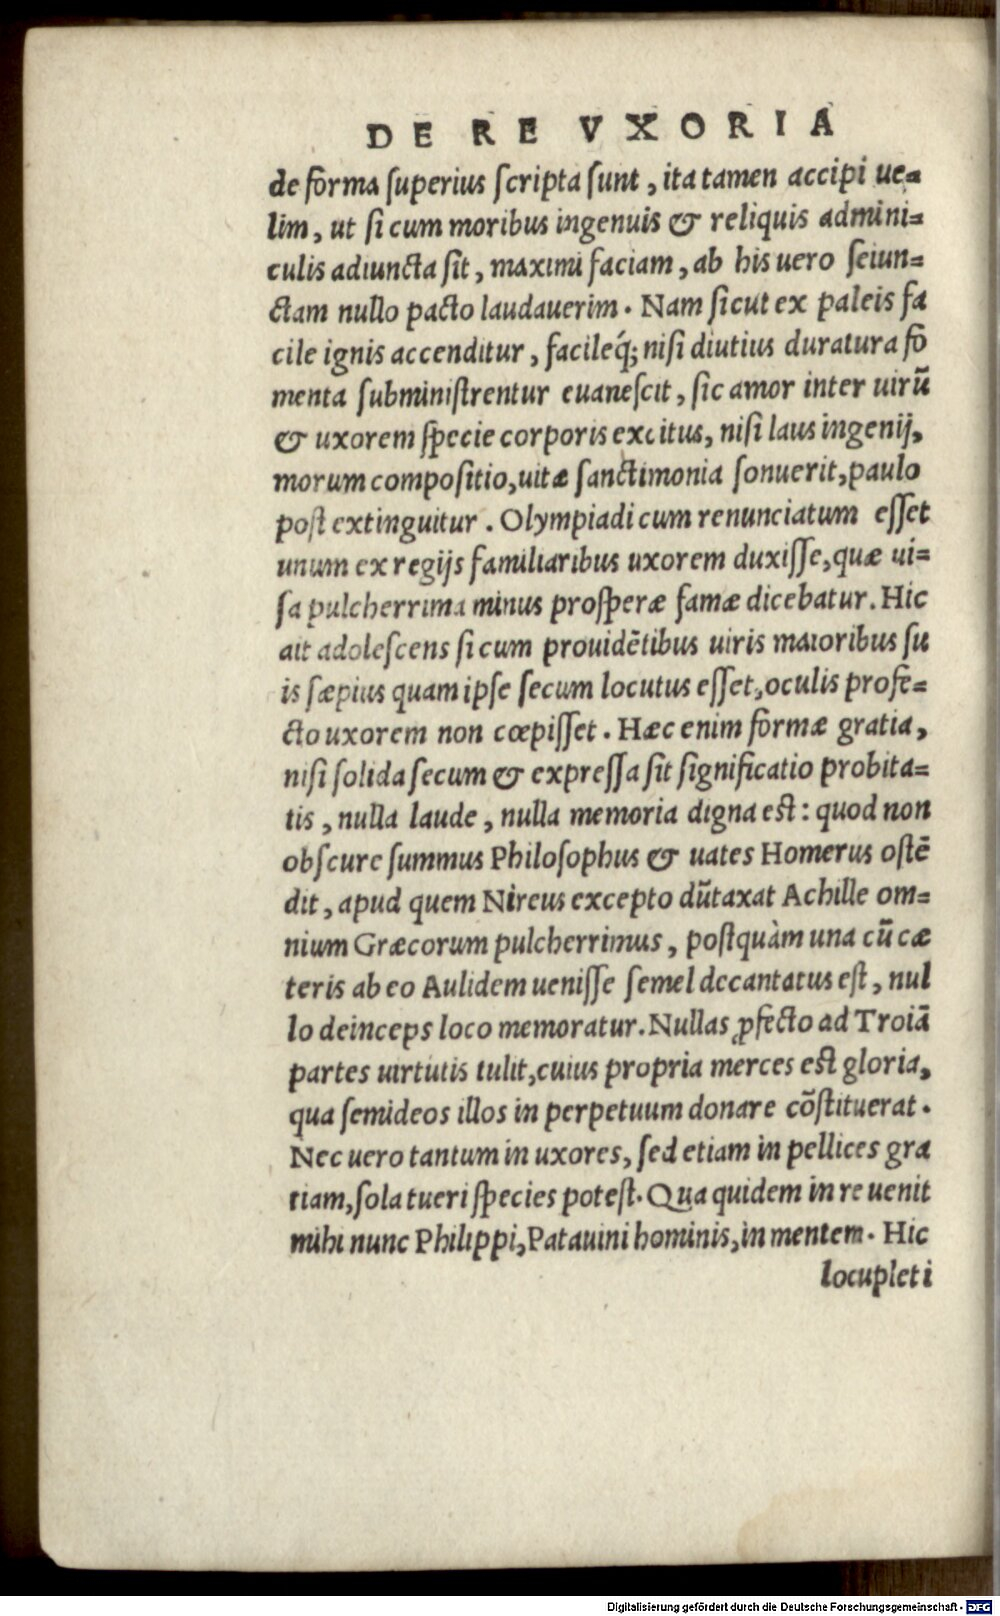 DE RE VXORIA
de forma ſuperius ſcripta ſunt, ita tamen accipi ue=
lim, ut ſi cum moribus ingenuis & reliquis admini=
culis adiuncta ſit, maximi faciam, ab his uero ſeiun=
ctam nullo pacto laudauerim. Nam ſicut ex paleis fa
cile ignis accenditur, facileq́; niſi diutius duratura fo
menta ſubminiſtrentur euaneſcit, ſic amor inter uirũ
& uxorem ſpecie corporis excitus, niſi laus ingenij,
morum compoſitio, uitæ ſanctimonia ſonuerit, paulo
poſt extinguitur. Olympiadi cum renunciatum eſſet
unum ex regijs familiaribus uxorem duxiſſe, quæ ui=
ſa pulcherrima minus proſperæ famæ dicebatur. Hic
ait adoleſcens ſi cum prouidẽtibus uiris maioribus ſu
is ſæpius quam ipſe ſecum locutus eſſet, oculis profe=
cto uxorem non cœpiſſet. Hæc enim formæ gratia,
niſi ſolida ſecum & expreſſa ſit ſignificatio probita=
tis, nulla laude, nulla memoria digna eſt: quod non
obſcure ſummus Philoſophus & uates Homerus oſtẽ
dit, apud quem Nireus excepto dũtaxat Achille om=
nium Græcorum pulcherrimus, poſtquàm una cũ cæ
teris ab eo Aulidem ueniſſe ſemel decantatus eſt, nul
lo deinceps loco memoratur. Nullas ꝓfecto ad Troiã
partes uirtutis tulit, cuius propria merces eſt gloria,
qua ſemideos illos in perpetuum donare cõſtituerat.
Nec uero tantum in uxores, ſed etiam in pellices gra
tiam, ſola tueri ſpecies poteſt. Qua quidem in re uenit
mihi nunc Philippi, Patauini hominis, in mentem. Hic
locupleti
Digitalisierung gefördert durch die Deutsche Forschungsgemeinschaft - DFG